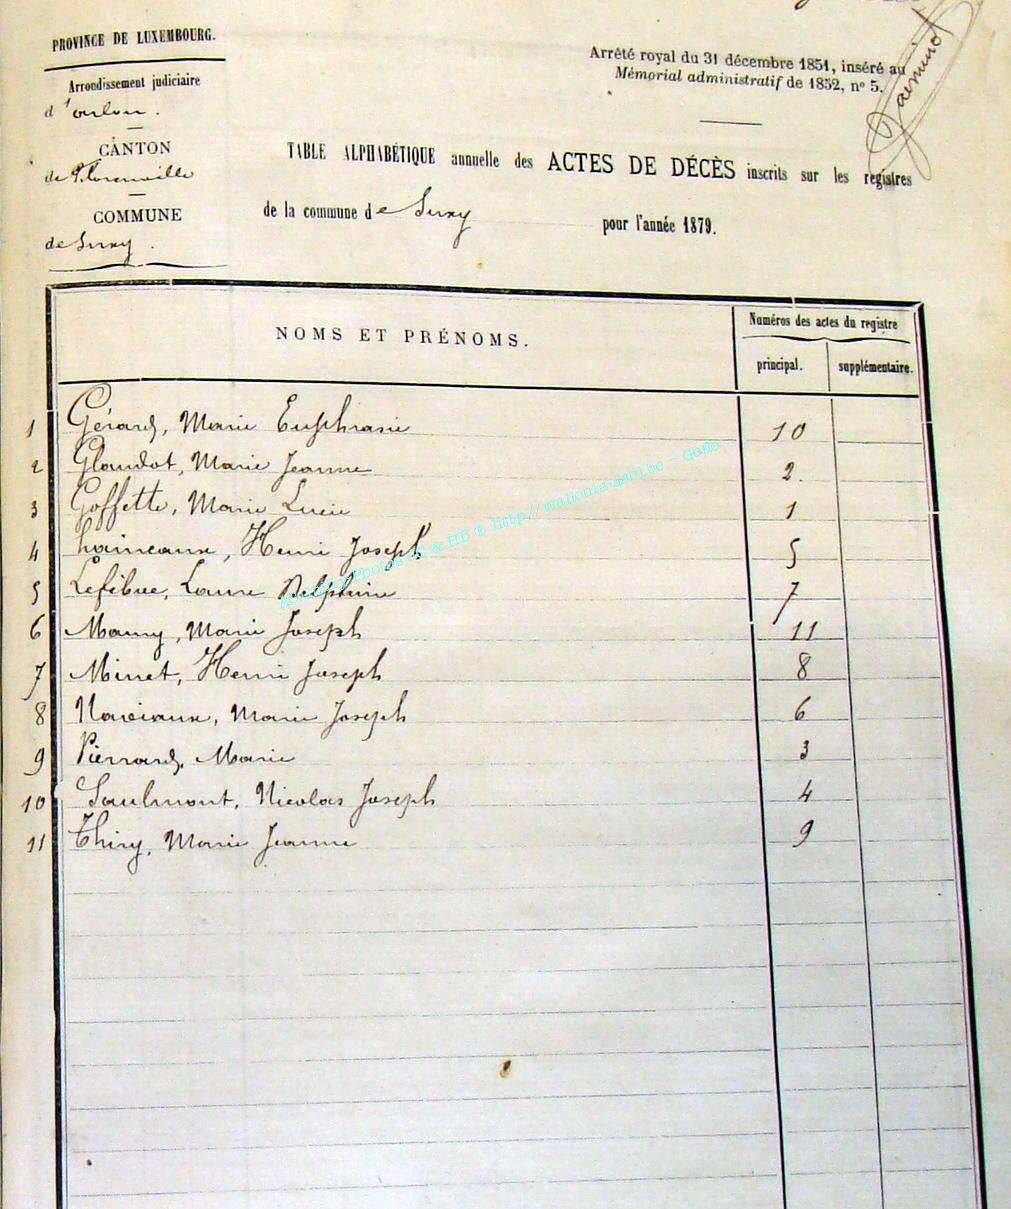 PROVINCE DE LUXEMBOURG.
Arrondissement judiciaire
d'arlon.
CANTON
de Florenville
COMMUNE
de Suxy.
Arrêté royal du 31 décembre 1851, inséré au
Mémorial administratif de 1852, nº 5.
TABLE ALPHABÉTIQUE annuelle des ACTES DE DÉCÈS inscrits sur les registres
de la commune de Suxy pour l'année 1879.
NOMS ET PRÉNOMS.
Numéros des actes du registre
principal. supplémentaire.
1 Gérard, Marie Euphrasie 10
2 Glaudot, Marie Jeanne 2.
3 Goffette, Marie Lucie 1
4 Henri Joseph 5
5 Lefèbvre, Laure Delphine 7
6 Marie Joseph 11
7 Minet, Henri Joseph 8
8 Naviaux, Marie Joseph 6
9 Pierrard, Marie 3
10 Saulmont, Nicolas Joseph 4
11 Thiry, Marie Jeanne 9
Photos JC & HB ® http://wallonia-asbl.be - Gafio